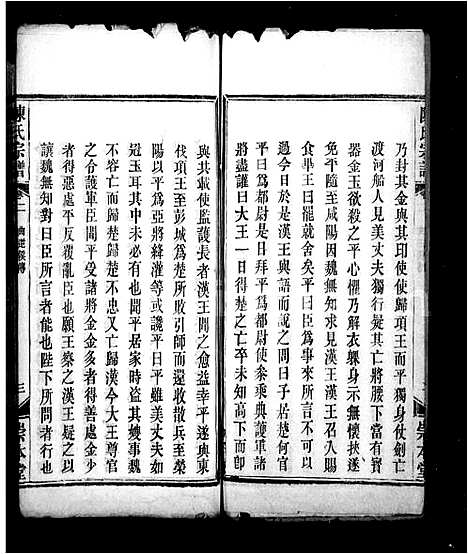 乃封其金與其印使使歸項王而平身間行仗劍亡
渡河船人見美丈夫獨行疑其亡將腰下當有寶
器金玉欲殺之平心懼乃解衣躶身示無懷挾遂
免平隨至咸陽因魏無知求見漢王漢王召入賜
食畢王曰罷就舍矣平曰臣為事來所言不可以
過今日於是漢王與語而說之問曰子居楚何官
平曰為都尉是日拜平為都尉使參乘典護軍諸
將盡讙曰大王一日得楚之亡卒未知高下而即
與共載使監護長者漢王聞之愈益幸平遂與東
伐項王至彭城為楚所敗引師而還收散兵至滎
陽以平為亞將絳灌等或讒平曰平雖美丈夫如
冠玉耳其中未必有也聞平居家時盜其嫂事魏
不容亡而歸楚歸楚不中又亡歸漢今大王尊官
之令護軍臣聞平受諸將金金多者得善處金少
者得惡處平反覆亂臣也願王察之漢王疑之以
讓魏無知對曰臣所言者能也陛下所問者行也
陳氏宗譜
卷二
曲逆侯傳
三
崇本堂